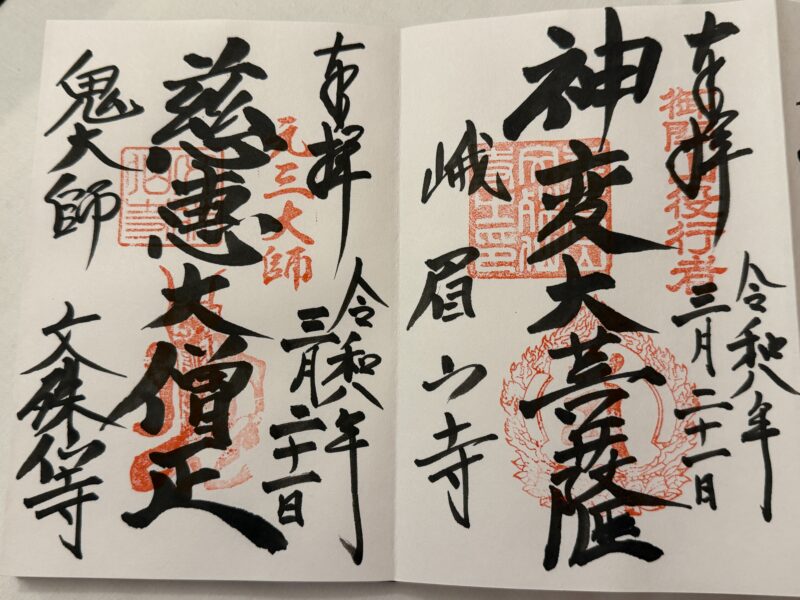 奉拝
御開山役行者
令和八年
三月二十一日
神変大菩薩
峨眉山寺
奉拝
元三大師
令和八年
三月二十一日
慈恵大僧正
鬼大師
文殊仙寺